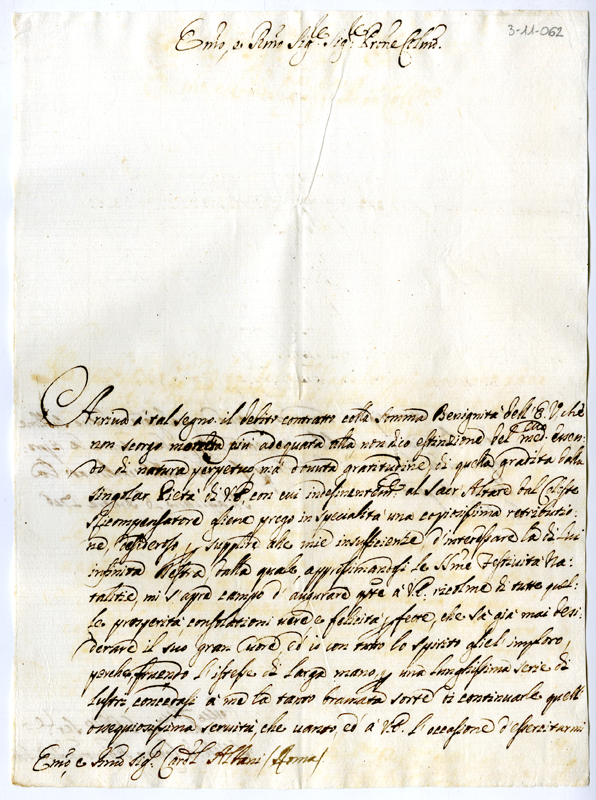 3-11-062
Emo, e Rmo Sigr. Sigr. Prone Colmo.
Arriva à tal segno il debito contratto colla somma Benignità dell'E. V. che
non scorgo moneta più adequata alla non dico estinzione del medmo essen-
do di natura perpetuo, ma dovuta gratitudine di quella gradita dalla
singolar Pietà di V. E., con cui indefinentemte. al Sacr. Altare dal Celeste
Ricompensatore gliene prego in specialità una copiosissima retributio-
ne, desideroso p supplire alle mie insufficienze d'interessare la di Lui
infinita Destra, dalla quale approssimandosi le SSme Festività Na-
talitie, mi s'apre campo d'augurare qste à V. E. ricolme di tutte quel-
le prosperità, consolationi vere, e felicità pfette, che sà già mai desi-
derare il suo gran Cuore, ed io con tutto lo spirito gliel'imploro,
perche fruendo l'istesse di larga mano, p una lunghissima serie di
lustri, concedasi à me la tanto bramata sorte di continuarle quell'
ossequiosissima servitù, che vanto, ed à V. E. l'occasione d'essercitarmi
Emo, e Rmo Sigr. Cardl. Albani (Roma)